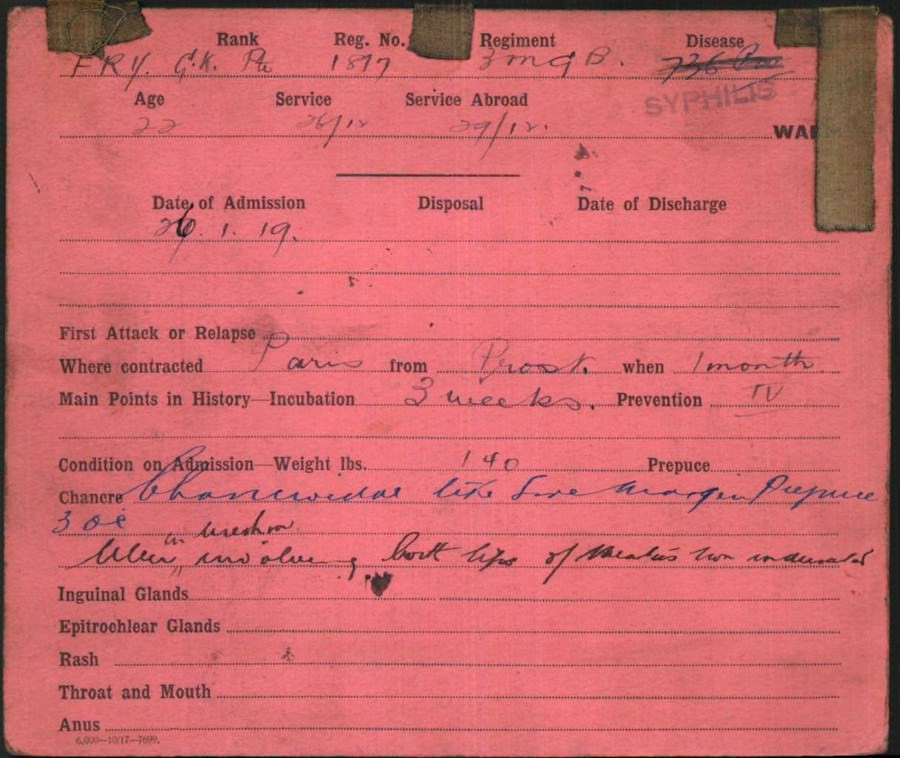 Rank Reg. No. Regiment Disease
FRY. G.K. Pte 1817 3 M G B.
SYPHILIS
Age Service Service Abroad
22 26/12 29/12.
WAR
Date of Admission Disposal Date of Discharge
26. 1. 19.
First Attack or Relapse
Where contracted Paris from Prost. when 1 month
Main Points in History—Incubation 3 weeks. Prevention IV
Condition on Admission—Weight lbs. 140 Prepuce
Chancre Chancroidal like Sore Margin Prepuce
in urethra
Ulcer, involving both lips of Meatus non indurated
Inguinal Glands
Epitrochlear Glands
Rash
Throat and Mouth
Anus
6,000—10/17—7699.